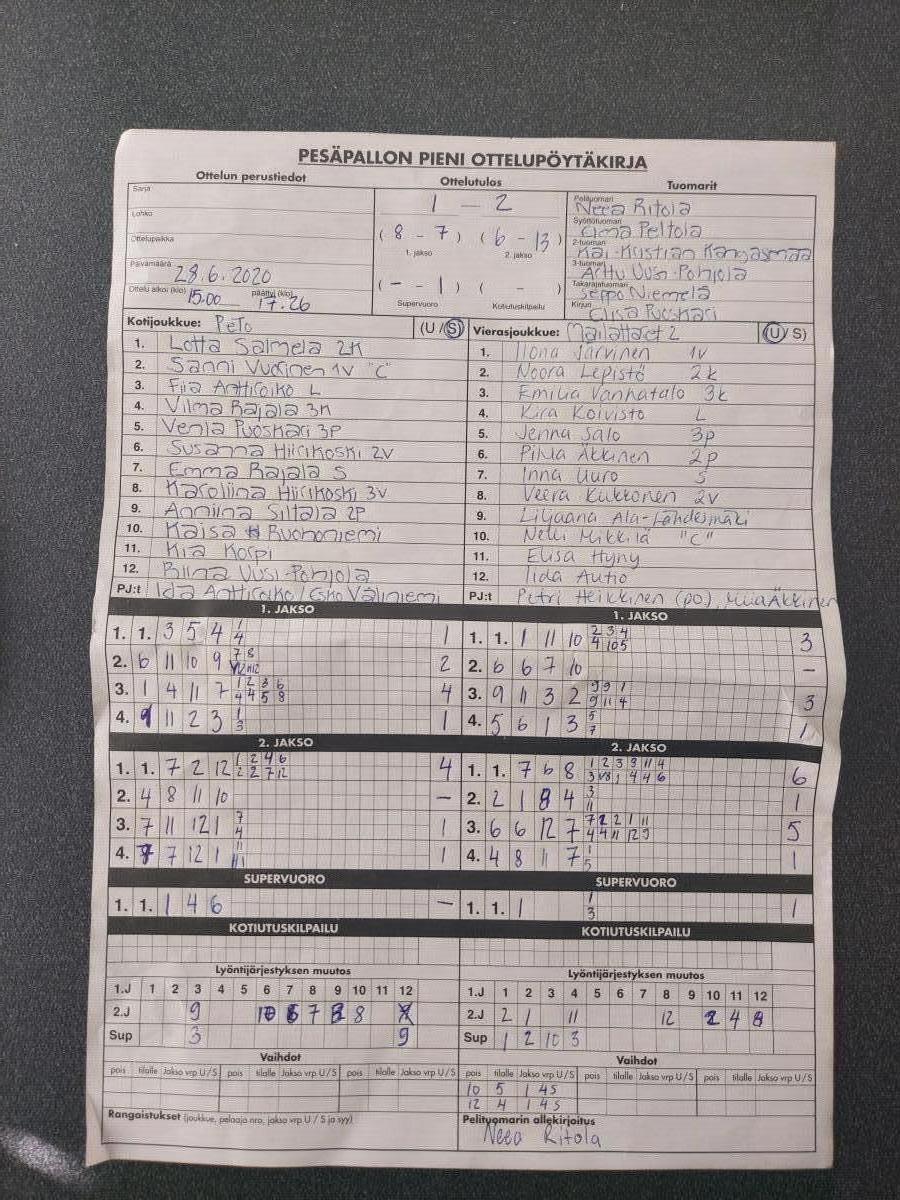 PESÄPALLON PIENI OTTELUPÖYTÄKIRJA
Ottelun perustiedot Ottelutulos Tuomarit
Sarja
Lohko
Ottelupaikka
Päivämäärä 28.6.2020
Ottelu alkoi (klo) 15.00 päättyi (klo) 17.26
1 - 2
( 8 - 7 ) ( 6 - 13 )
1. jakso 2. jakso
( - - 1 ) ( - )
Supervuoro Kotiutuskilpailu
Pelituomari Neea Ritola
Syöttötuomari Elma Peltola
2-tuomari Kai-Kristian Kangasmaa
3-tuomari Arttu Uusi-Pohjola
Takarajatuomari Seppo Niemelä
Kirjuri Elisa Puoskari
Kotijoukkue: PeTo (U / S)
1. Lotta Salmela 2K
2. Sanni Vuorinen 1V "C"
3. Fiia Anttiroiko L
4. Vilma Rajala 3K
5. Venla Puoskari 3P
6. Susanna Hiirikoski 2V
7. Emma Rajala S
8. Karoliina Hiirikoski 3V
9. Anniina Siltala 2P
10. Kaisa Ruohoniemi
11. Kia Korpi
12. Riina Uusi-Pohjola
PJ:t Ida Anttiroiko / Esko Väliniemi
Vierasjoukkue: Mailattaret 2 (U / S)
1. Ilona Järvinen 1v
2. Noora Lepistö 2k
3. Emilia Vanhatalo 3k
4. Kira Koivisto L
5. Jenna Salo 3p
6. Pihla Äkkinen 2p
7. Inna Uuro S
8. Veera Kukkonen 2v
9. Liljaana Ala-Lahdesmäki
10. Nelli Mikkilä "C"
11. Elisa Hyny
12. Iida Autio
PJ:t Petri Heikkinen (po), Miia Äkkinen
1. JAKSO
1. 1. 3 5 4 1 1
4
2. 6 11 10 9 7 8 2
12
3. 1 4 11 7 1 2 3 6 4
4 4 5 8
4. 9 11 2 3 1 1
3
1. JAKSO
1. 1. 1 11 10 2 3 4 3
4 10 5
2. 6 6 7 10 -
3. 9 11 3 2 9 9 1 3
9 11 4
4. 5 6 1 3 5 1
7
2. JAKSO
1. 1. 7 2 12 1 2 4 6 4
2 2 7 12
2. 4 8 11 10 -
3. 7 11 12 1 7 1
4
4. 7 7 12 1 11 1
2. JAKSO
1. 1. 7 6 8 1 2 3 9 11 4 6
3 1 4 4 6
2. 2 1 8 4 3 1
11
3. 6 6 12 7 7 2 2 1 11 5
4 4 11 12
4. 4 8 11 7 1 1
5
SUPERVUORO
1. 1. 1 4 6 -
SUPERVUORO
1. 1. 1 1 1
3
KOTIUTUSKILPAILU
KOTIUTUSKILPAILU
Lyöntijärjestyksen muutos
1.J 1 2 3 4 5 6 7 8 9 10 11 12
2.J 9 6 7 8
Sup 3 9
Lyöntijärjestyksen muutos
1.J 1 2 3 4 5 6 7 8 9 10 11 12
2.J 2 1 11 12 2 4 8
Sup 1 2 10 3
Vaihdot
pois tilalle Jakso vrp U/S pois tilalle Jakso vrp U/S pois tilalle Jakso vrp U/S
Vaihdot
pois tilalle Jakso vrp U/S pois tilalle Jakso vrp U/S pois tilalle Jakso vrp U/S
10 5 1 4S
12 4 1 4S
Rangaistukset (joukkue, pelaaja nro, jakso vrp U / S ja syy)
Pelituomarin allekirjoitus
Neea Ritola